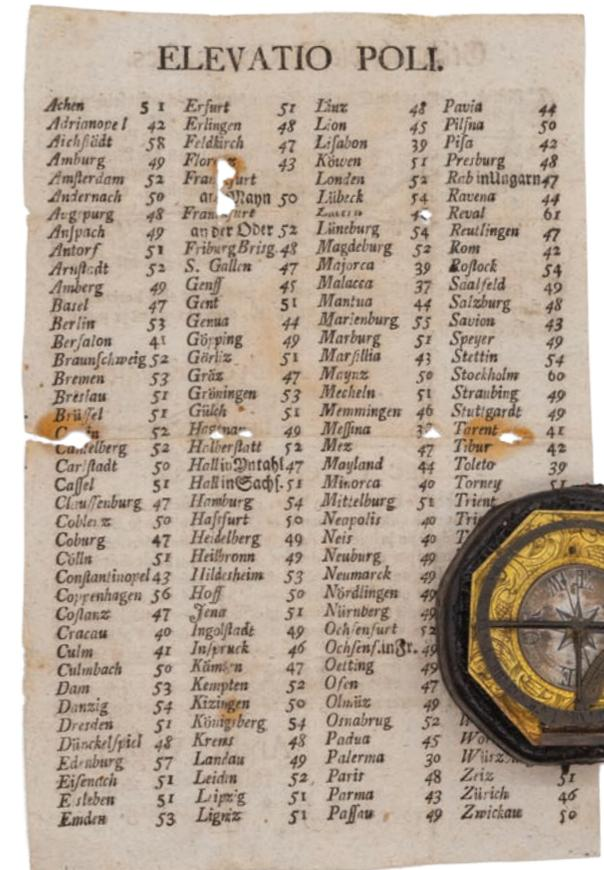 ELEVATIO POLI.
Achen 51
Adrianopel 42
Aichſtädt 58
Amburg 49
Amſterdam 52
Andernach 50
Augspurg 48
Anſpach 49
Antorf 51
Arnſtadt 52
Amberg 49
Basel 47
Berlin 53
Berſalon 41
Braunſchweig 52
Bremen 53
Breslau 51
Brüſſel 51
52
Cantelberg 52
Carlſtadt 50
Caſſel 51
Clauſſenburg 47
Coblenz 50
Coburg 47
Cölln 51
Conſtantinopel 43
Coppenhagen 56
Coſtanz 47
Cracau 40
Culm 41
Culmbach 50
Dam 53
Danzig 54
Dresden 51
Dünckelſpiel 48
Edenburg 57
Eiſenach 51
Eisleben 51
Emden 53
Erfurt 51
Erlingen 48
Feldkirch 47
Florenz 43
Frankfurt
am Mayn 50
Frankfurt
an der Oder 52
Friburg Brisg. 48
S. Gallen 47
Genff 45
Gent 51
Genua 44
Göpping 49
Görliz 51
Gräz 47
Gröningen 53
Gülch 51
Hagenau 49
Halberſtatt 52
Hall in Yntahl 47
Hall in Sachſ. 51
Hamburg 54
Haſsfurt 50
Heidelberg 49
Heilbronn 49
Hildesheim 53
Hoff 50
Jena 51
Ingolſtadt 49
Inſpruck 46
47
Kempten 52
Kizingen 50
Königsberg 54
Krems 48
Landau 49
Leidin 52
Leipzig 51
Ligniz 51
Linz 48
Lion 45
Liſabon 39
Köwen 51
Londen 52
Lübeck 54
Lüneburg 54
Magdeburg 52
Majorca 39
Malacca 37
Mantua 44
Marienburg 55
Marburg 51
Marſillia 43
Maynz 50
Mecheln 51
Memmingen 46
Meſſina
Mez 47
Mayland 44
Minorca 40
Mittelburg 51
Neapolis 40
Neis 40
Neuburg 49
Neumarck 49
Nördlingen 49
Nürnberg 49
Ochſenfurt 52
Ochſenf. in Fr. 49
Oetting 49
Ofen 47
Olmüz 49
Osnabrug 52
Padua 45
Palerma 30
Paris 48
Parma 43
Paſſau 49
Pavia 44
Pilſna 50
Piſa 42
Presburg 48
Rab in Ungarn 47
Ravena 44
Reval 61
Reutlingen 47
Rom 42
Roſtock 54
Saalfeld 49
Salzburg 48
Savion 43
Speyer 49
Stettin 54
Stockholm 60
Straubing 49
Stuttgardt 49
Tarent 41
Tibur 42
Toleto 39
Torney 51
Trient
Zeiz 51
Zürich 46
Zwickau 50